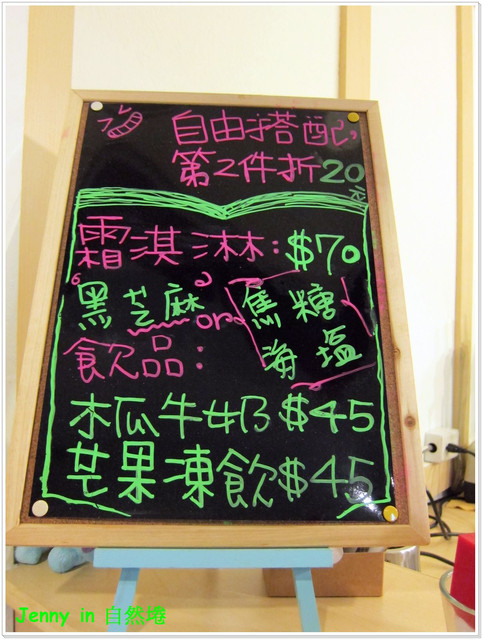 自由搭配,
第2件折20元
霜淇淋:$70
黑芝麻or焦糖海塩
飲品:
木瓜牛奶$45
芒果凍飲$45
Jenny in 自然捲